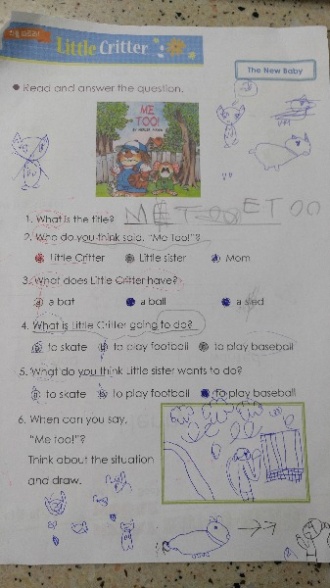 Little Critter
The New Baby
Read and answer the question.
ME
TOO!
1. What is the title? M E T O O! E T O O
2. Who do you think said, "Me Too!"?
Little Critter Little sister Mom
3. What does Little Critter have?
a bat a ball a sled
4. What is Little Critter going to do?
to skate to play football to play baseball
5. What do you think Little sister wants to do?
to skate to play football to play baseball
6. When can you say,
"Me too!"?
Think about the situation
and draw.